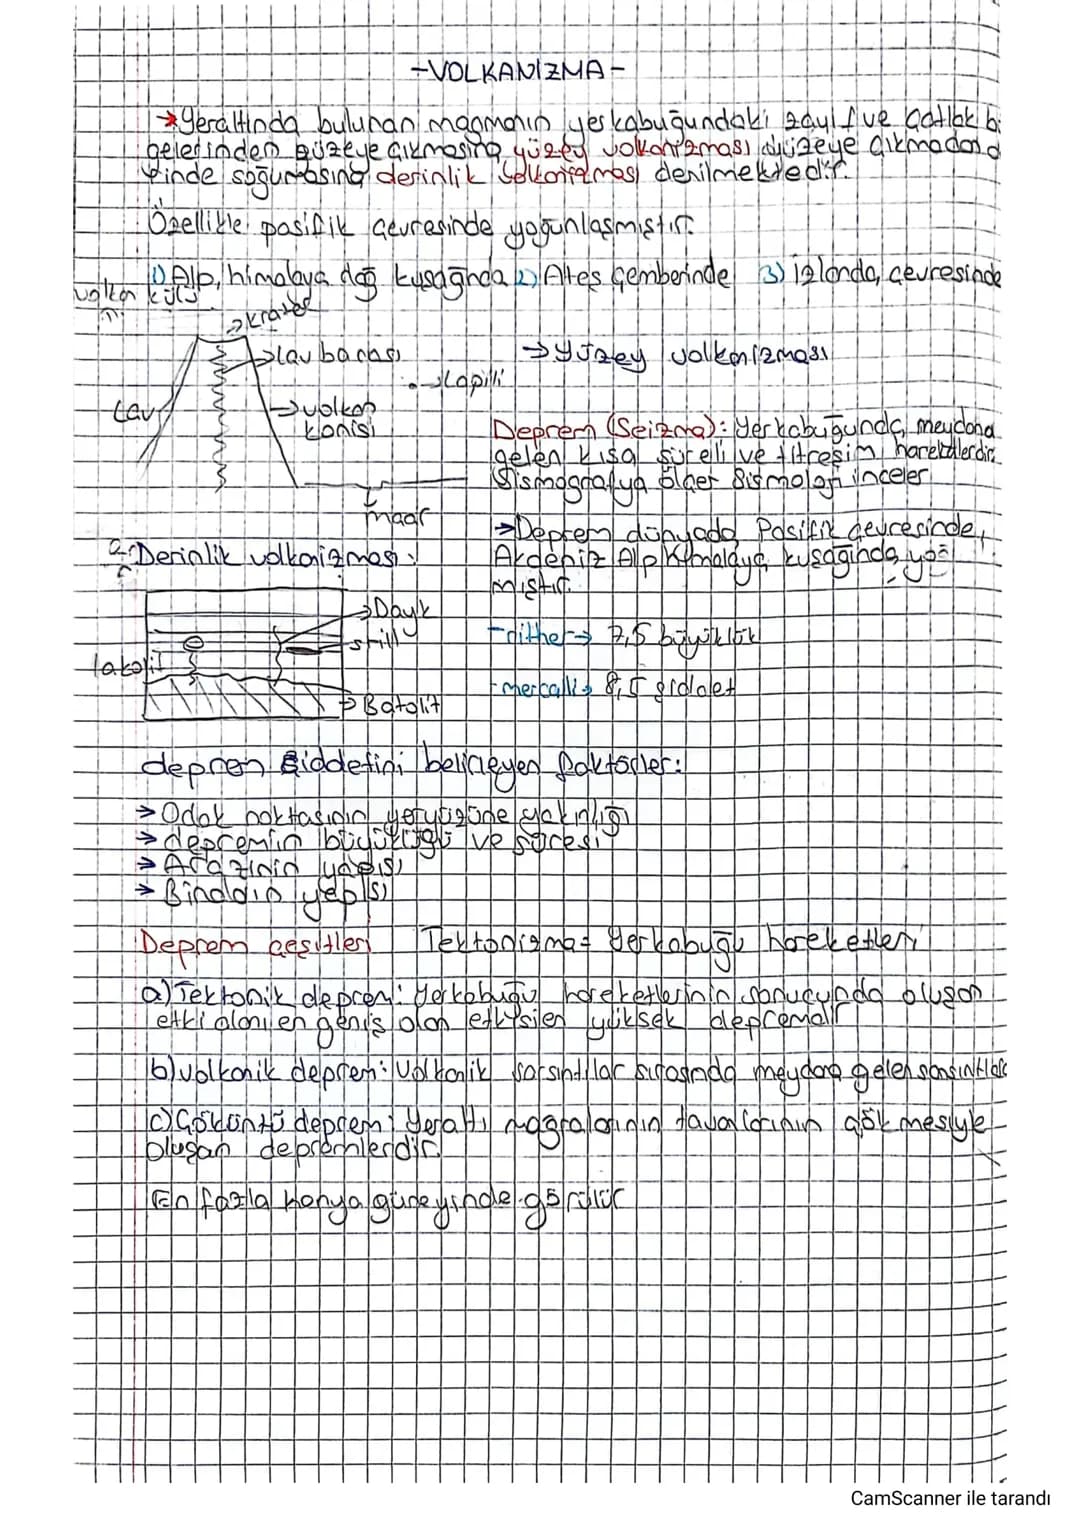 -VOLKANİZMA-
→Yeraltında bulunan magmanın yerkabuğundaki zayıf ve çatlak bö
gelerinden yüzeye çıkmasına yüzey volkanizması yüzeye çıkmadan d
inde soğumasına derinlik volkanizması denilmektedir.
Özellikle pasifik çevresinde yoğunlaşmıştır.
1) Alp, himalaya dağ kuşağnda 2) Ateş Çemberinde 3) izlanda, çevresinde
volkan külü
→krater
→lav bacası
→Yüzey volkanizması
→lapilli
Lav
→volkan
konisi
maar
Deprem (Seizma): Yerkabuğunda, meydana
gelen kısa süreli ve titreşim hareketlerdir.
Sismografya ölçer Sismoloji inceler
→Deprem dünyada Pasifik çevresinde,
Akdeniz Alp Himalaya kuşağında yoğ
mıştır.
2-Derinlik volkanizması:
→Dayk
→sill
lakolit
→Batolit
-rither→ 7,5 büyüklük
-mercalli→ 8,5 şiddet
deprem şiddetini belirleyen faktörler:
→Odak noktasının yeryüzüne yakınlığı
→depremin büyüklüğü ve süresi
→Arazinin yapısı
→Binaların yapısı
Deprem çeşitleri Tektonizma= Yerkabuğu hareketleri
a) Tektonik deprem: Yerkabuğu hareketlerinin sonucunda oluşan
etki alanı en geniş olan etkisi en yüksek depremdir
b) volkanik deprem: Volkanik sarsıntılar sırasında meydana gelen sarsıntılar
c) Çöküntü deprem: Yeraltı mağralarının tavanlarının çökmesiyle
oluşan depremlerdir.
En fazla konya güneyinde görülür
CamScanner ile tarandı